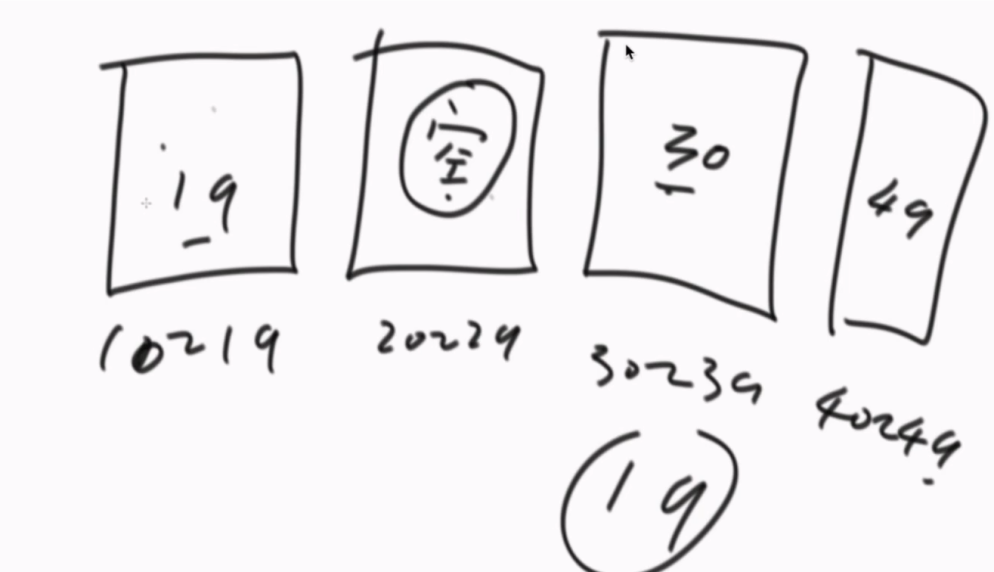 19
空
30
49
10~19
20~29
30~39
40~49
19